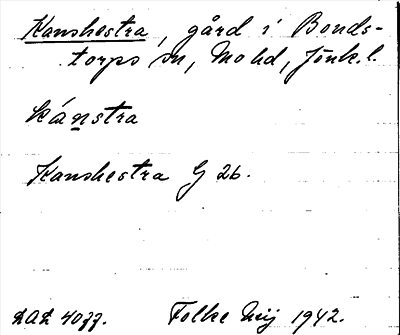 Kanshestra, gård i Bonds-
torps sn, Mo hd, Jönk. l.
kánstra
Kanshestra G 26.
DAL 4077.
Folke Mij 1942.